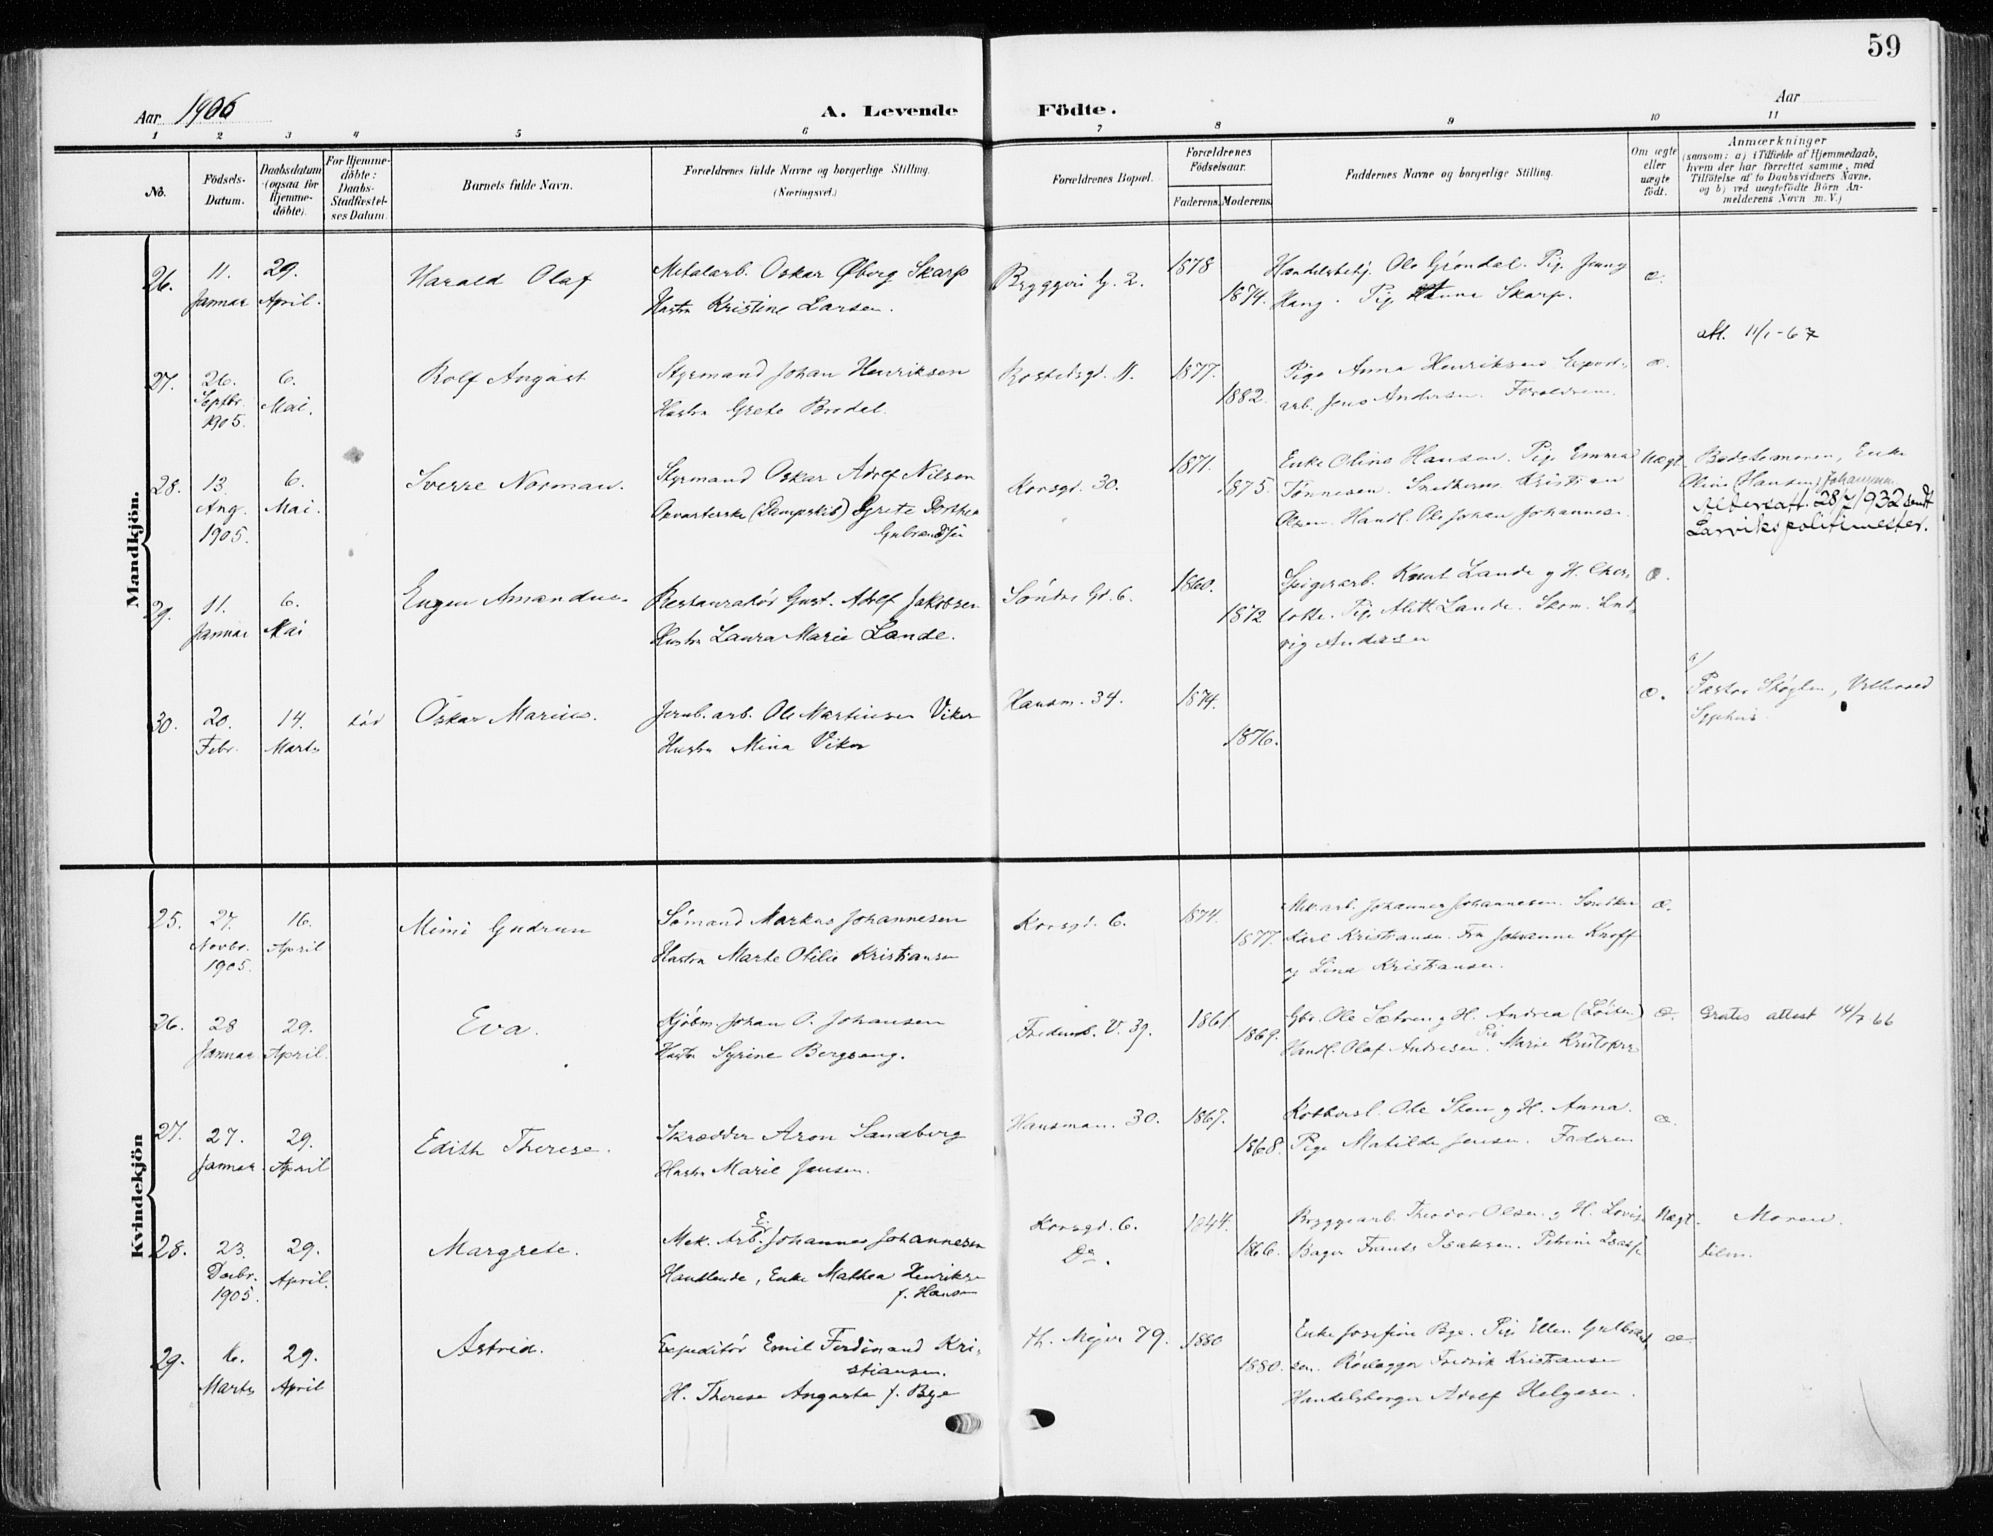 59
Aar 1906
A. Levende Födte.
Aar
1 2 3 4 5 6 7 8 9 10 11
No.
Födsels-Datum.
Daabsdatum (ogsaa for Hjemme-döbte).
For Hjemme-döbte: Daabs-Stadfæstel-ses Datum.
Barnets fulde Navn.
Forældrenes fulde Navne og borgerlige Stilling. (Næringsvei.)
Forældrenes Bopæl.
Forældrenes Födselsaar.
Faderens. Moderens.
Faddernes Navne og borgerlige Stilling.
Om ægte eller uægte födt.
Anmærkninger
(saasom: a) i Tilfælde af Hjemmedaab,
hvem der har forrettet samme, med
Tilföielse af to Daabsvidners Navne,
og b) ved uægtefödte Börn An-
melderens Navn m. V.)
Mandkjön.
26. 11. Januar 29. April. Harald Olaf
Metalarb. Oskar Øberg Skarp
Hustru Kristine Larsen.
Bryggeri G. 2. 1878 1874.
Handelsbetj. Ole Gröndal. Pig. Jenny
Haug. Pig. Anna Skarp.
æ.
att. 11/1-67
27. 26. Septbr. 1905. 6. Mai. Rolf August
Styrmand Johan Henriksen
Hustru Grete Bredal.
11. 1877. 1882.
Pige Anna Henriksen
arb. Jens Andersen. Forældrene.
æ.
28. 13. Aug. 1905. 6. Mai. Sverre Norman.
Styrmand Oskar Adolf Nilsen
Opvarterske (Dampskib) Grete Dorthea
Gulbrandsen
Korsgd. 30. 1871. 1875.
Enke Oline Hansen. Pige Emma
Tönnesen. Snedkersv. Kristian
Olsen. Handl. Ole Johan Johannesen.
Uægt.
Bedstemoren, Enke
Oline (Hansen) Johannsen
Aldersatt. 28/7 1932 sendt
Larviks politimester.
29. 11. Januar 6. Mai Eugen Amandus
Restauratör Gust. Adolf Jakobsen
Hustru Laura Marie Lande.
Söndre Gd. 6. 1860. 1872
Spigerarb. Knut Lande og H. Char-
lotte. Pige Alett Lande. Skom. Lud-
vig Andersen
æ.
30. 20. Febr. 14. Marts död Oskar Marius.
Jernb. arb. Ole Martinsen Viker
Hustru Mina Viker
Hausm. 34. 1874. 1876.
æ.
a/ Pastor
Kvindekjön
25. 27. Novbr. 1905. 16. April Mimi Gudrun
Sömand Markus Johannesen
Hustru Marte Otilie Kristiansen
Korsgd. 6. 1874. 1877.
Mek. arb. Johannes Johannesen.
Karl Kristiansen. Fru Johanne Knoff
og Lina Kristiansen.
æ.
26. 28 Januar 29. April. Eva.
Kjöbm. Johan O. Johansen
Hustru Syrine Bergsang.
V. 39. 1861 1869.
Gbr. Ole Sætren og H. Andrea (Löiten)
Handl. Olaf Andresen. Pig. Marie
æ.
Gratis attest 14/7 66
27. 27. Januar 29. April Edith Therese.
Skrædder Aron Sandberg
Hustru Marie Jensen.
Hausman. 30. 1867. 1868.
Ole Steen og H. Anna.
Pige Matilde Jensen. Faderen
æ.
28. 23. Decbr. 1905. 29. April. Margrete.
Mek. Arb. E. Johannes Johannesen
Handlende, Enke Mathea Henriksen
f. Hansen
Korsgd. 6. Do. 1844. 1866.
Bryggearb. Theodor Olsen og H. Lovise
Bager Frants Isaksen. Petrine
Uægt.
Moren.
29. 6. Marts 29. April Astrid.
Expeditör Emil Ferdinand Kri-
stiansen.
H. Therese Augusta f. Bye
Th. Mejer 79. 1880 1880.
Enke Josefine Bye. Pige Ellen Gulbrand-
sen. Rörlægger Fredrik Kristiansen
Handelsborger Adolf Helgesen.
æ.